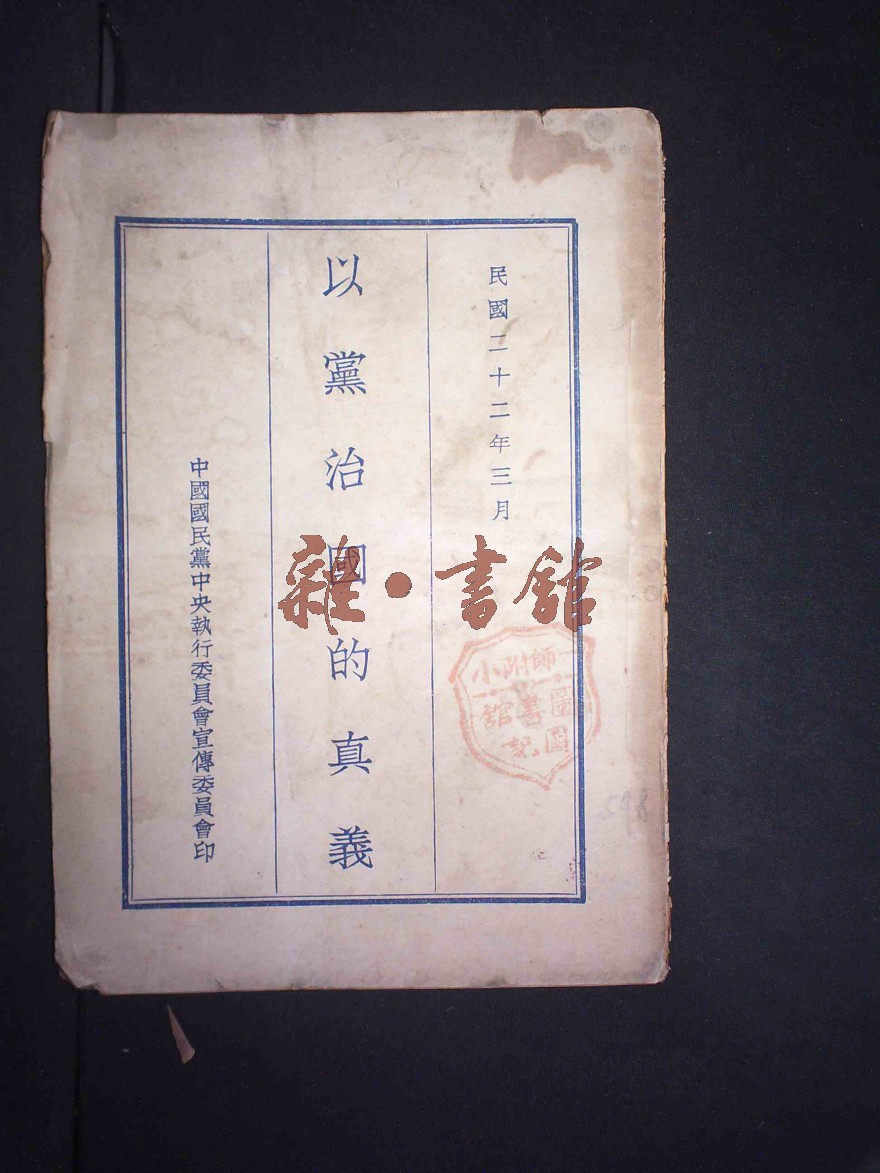 民國二十二年三月
以黨治國的真義
中國國民黨中央執行委員會宣傳委員會印
雜·書館
一師附小
圖書館
圖記